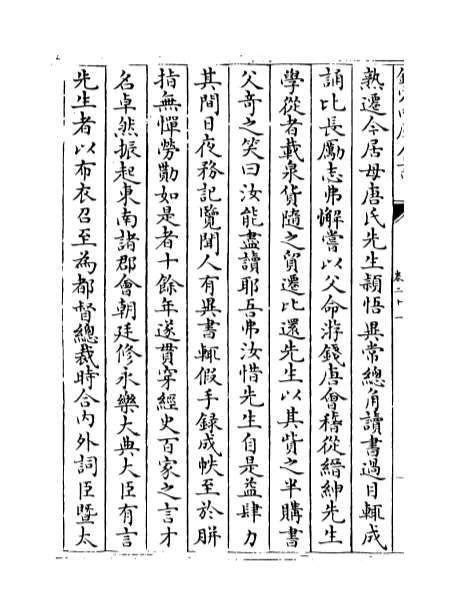 欽定四庫全書
卷二十一
熟遷今居母唐氏先生穎悟異常總角讀書過目輒成
誦比長厲志弗懈嘗以父命游錢唐會稽從縉紳先生
學從者載泉貨隨之貿遷比還先生以其貲之半購書
父奇之笑曰汝能盡讀耶吾弗汝惜先生自是益肆力
其間日夜務記覽聞人有異書輒假手録成帙至於胼
指無憚勞勩如是者十餘年遂貫穿經史百家之言才
名卓然振起東南諸郡會朝廷修永樂大典大臣有言
先生者以布衣召至為都督總裁時合内外詞臣暨太